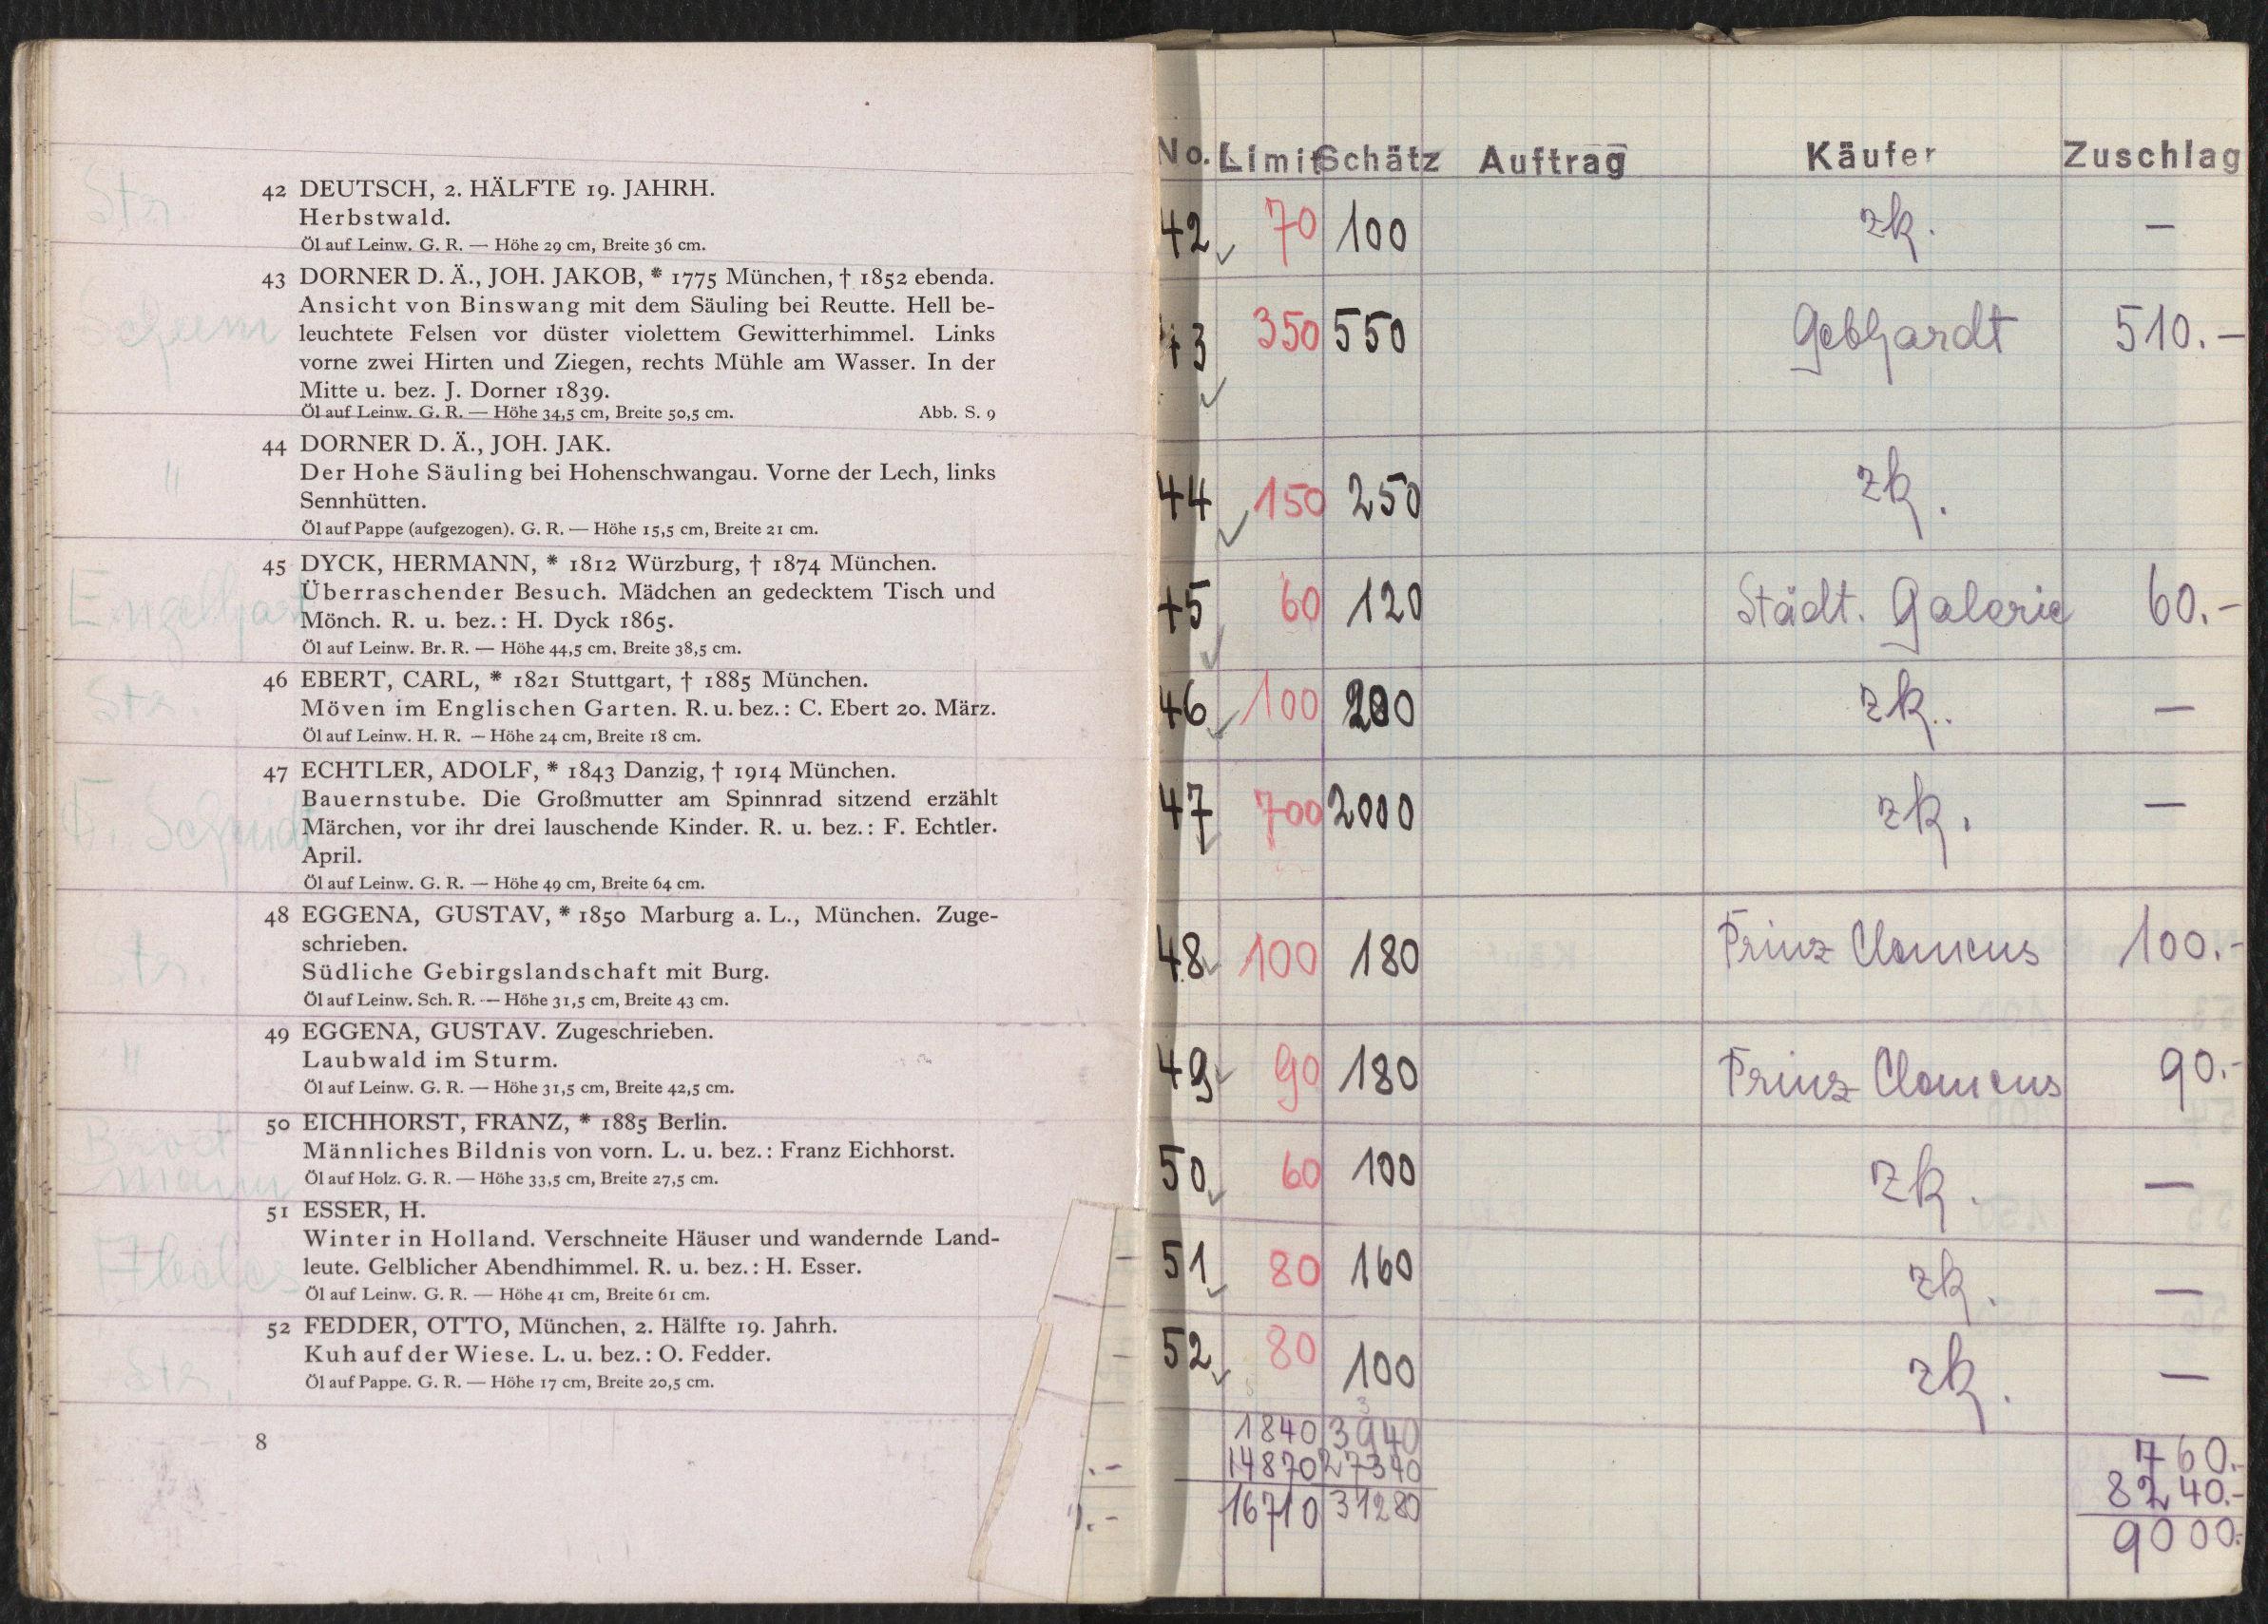 42 DEUTSCH, 2. HÄLFTE 19. JAHRH.
Herbstwald.
Öl auf Leinw. G. R. — Höhe 29 cm, Breite 36 cm.
43 DORNER D. Ä., JOH. JAKOB, * 1775 München, † 1852 ebenda.
Ansicht von Binswang mit dem Säuling bei Reutte. Hell be-
leuchtete Felsen vor düster violettem Gewitterhimmel. Links
vorne zwei Hirten und Ziegen, rechts Mühle am Wasser. In der
Mitte u. bez. J. Dorner 1839.
Öl auf Leinw. G. R. — Höhe 34,5 cm, Breite 50,5 cm. Abb. S. 9
44 DORNER D. Ä., JOH. JAK.
Der Hohe Säuling bei Hohenschwangau. Vorne der Lech, links
Sennhütten.
Öl auf Pappe (aufgezogen). G. R. — Höhe 15,5 cm, Breite 21 cm.
45 DYCK, HERMANN, * 1812 Würzburg, † 1874 München.
Überraschender Besuch. Mädchen an gedecktem Tisch und
Mönch. R. u. bez.: H. Dyck 1865.
Öl auf Leinw. Br. R. — Höhe 44,5 cm, Breite 38,5 cm.
46 EBERT, CARL, * 1821 Stuttgart, † 1885 München.
Möven im Englischen Garten. R. u. bez.: C. Ebert 20. März.
Öl auf Leinw. H. R. — Höhe 24 cm, Breite 18 cm.
47 ECHTLER, ADOLF, * 1843 Danzig, † 1914 München.
Bauernstube. Die Großmutter am Spinnrad sitzend erzählt
Märchen, vor ihr drei lauschende Kinder. R. u. bez.: F. Echtler.
April.
Öl auf Leinw. G. R. — Höhe 49 cm, Breite 64 cm.
48 EGGENA, GUSTAV, * 1850 Marburg a. L., München. Zuge-
schrieben.
Südliche Gebirgslandschaft mit Burg.
Öl auf Leinw. Sch. R. — Höhe 31,5 cm, Breite 43 cm.
49 EGGENA, GUSTAV. Zugeschrieben.
Laubwald im Sturm.
Öl auf Leinw. G. R. — Höhe 31,5 cm, Breite 42,5 cm.
50 EICHHORST, FRANZ, * 1885 Berlin.
Männliches Bildnis von vorn. L. u. bez.: Franz Eichhorst.
Öl auf Holz. G. R. — Höhe 33,5 cm, Breite 27,5 cm.
51 ESSER, H.
Winter in Holland. Verschneite Häuser und wandernde Land-
leute. Gelblicher Abendhimmel. R. u. bez.: H. Esser.
Öl auf Leinw. G. R. — Höhe 41 cm, Breite 61 cm.
52 FEDDER, OTTO, München, 2. Hälfte 19. Jahrh.
Kuh auf der Wiese. L. u. bez.: O. Fedder.
Öl auf Pappe. G. R. — Höhe 17 cm, Breite 20,5 cm.
8
Str.
"
Str.
F. Schmidt
Str.
"
Str.
No. Limit Schätz Auftrag Käufer Zuschlag
42 70 100 zk. —
43 350 550 Gebhardt 510.—
44 150 250 zk.
45 60 120 Städt. Galerie 60.—
46 100 200 zk. —
47 700 2000 zk. —
48 100 180 Prinz Clemens 100.-
49 90 180 Prinz Clemens 90.-
50 60 100 zk. —
51 80 160 zk. —
52 80 100 zk. —
1840 3940 760.-
14870 27340 8240.-
16710 31280 9000.-